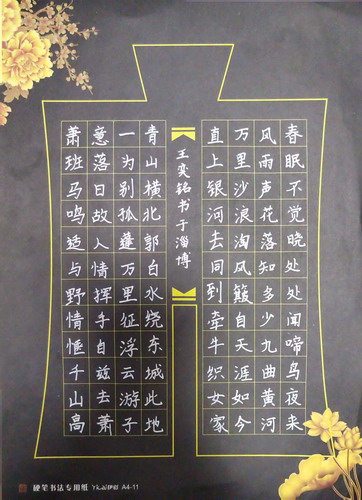 春眠不觉晓处处闻啼鸟夜来
风雨声花落知多少九曲黄河
万里沙浪淘风簸自天涯如今
直上银河去同到牵牛织女家
王奕铭书于淄博
青山横北郭白水绕东城此地
一为别孤蓬万里征浮云游子
意落日故人情挥手自兹去萧
萧班马鸣适与野情惬千山高
硬笔书法专用纸 A4-11